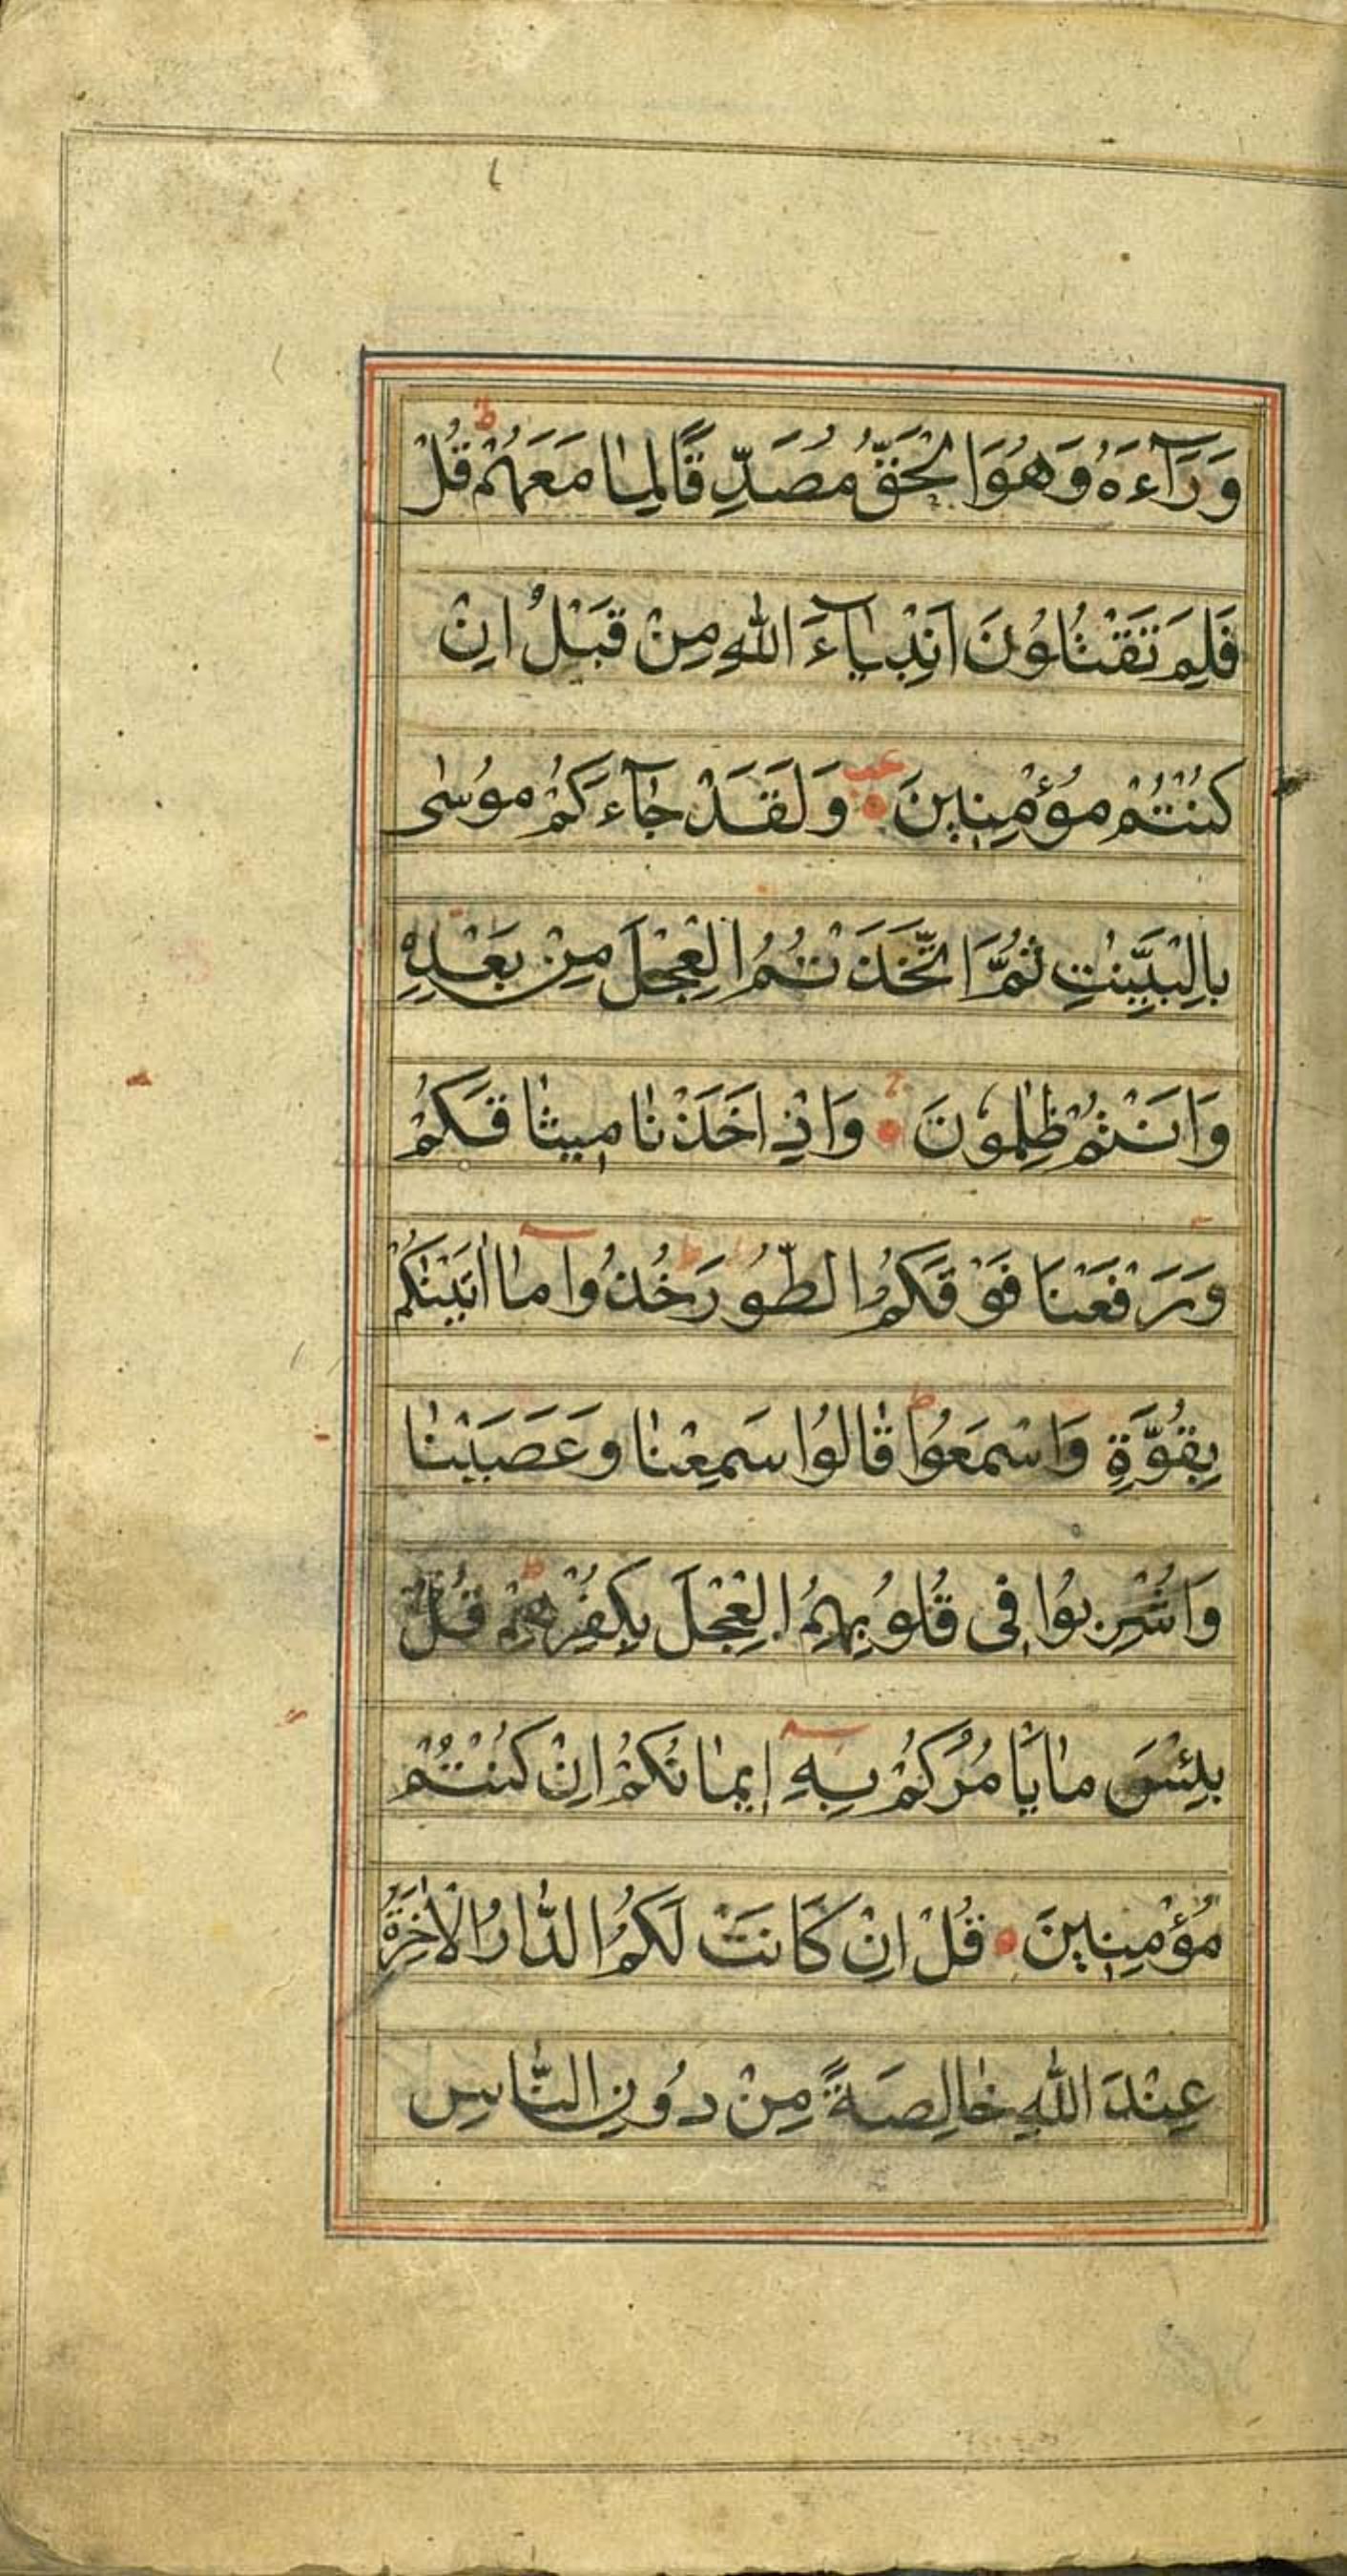 وَرَآءَهُ وَهُوَ الْحَقُّ مُصَدِّقًا لِمٰا مَعَهُمْ ط قُلْ
فَلِمَ تَقْتُلُونَ اَنْبِيٰآءَ اللّٰهِ مِنْ قَبْلُ اِنْ
كُنْتُمْ مُؤْمِنِينَ وَلَقَدْ جٰآءَكُمْ مُوسٰى
بِالْبَيِّنٰتِ ثُمَّ اتَّخَذْتُمُ الْعِجْلَ مِنْ بَعْدِهِ
وَاَنْتُمْ ظٰلِمُونَ وَاِذْ اَخَذْنٰا مِيثٰاقَكُمْ
وَرَفَعْنَا فَوْقَكُمُ الطُّورَ ط خُذُوا مٰا اٰتَيْنٰكُمْ
بِقُوَّةٍ وَاسْمَعُوا ط قٰالُوا سَمِعْنٰا وَعَصَيْنٰا
وَاُشْرِبُوا فِى قُلُوبِهِمُ الْعِجْلَ بِكُفْرِهِمْ ط قُلْ
بِئْسَ مٰا يَأْمُرُكُمْ بِهِ اِيمٰانُكُمْ اِنْ كُنْتُمْ
مُؤْمِنِينَ قُلْ اِنْ كَانَتْ لَكُمُ الدّٰارُ الْاٰخِرَةُ
عِنْدَ اللّٰهِ خٰالِصَةً مِنْ دُونِ النّٰاسِ